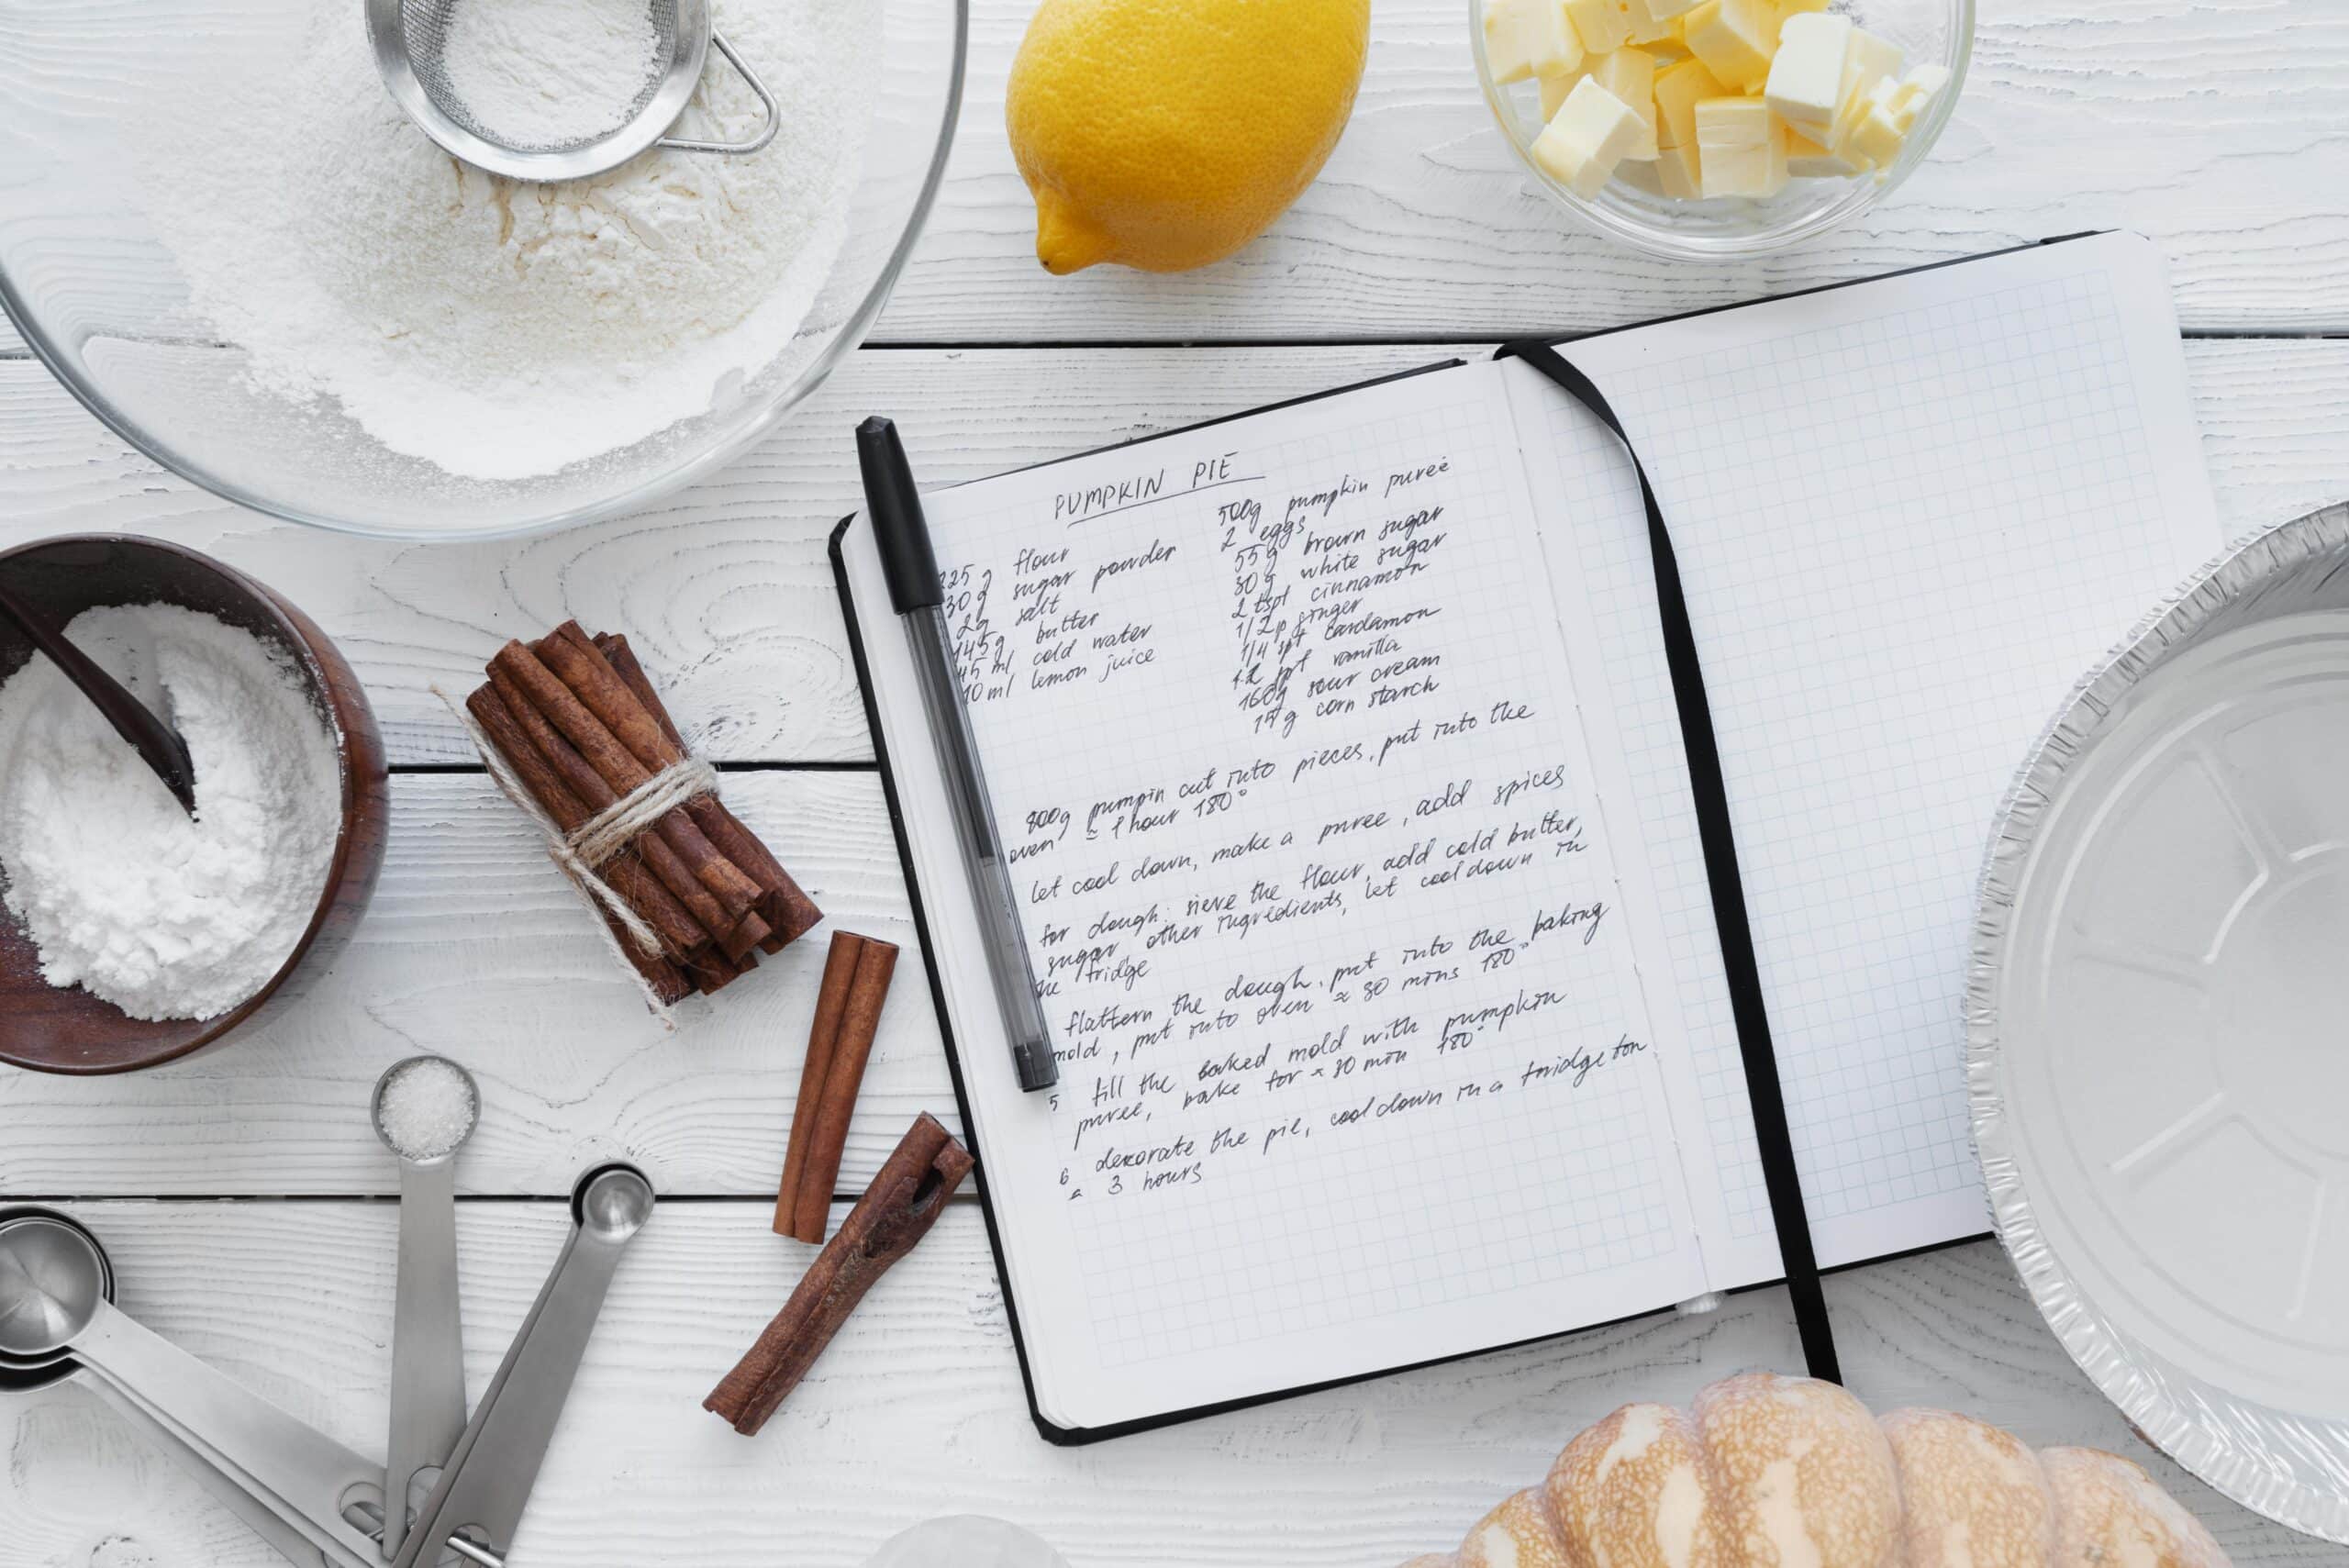 PUMPKIN PIE
225 g flour
30 g sugar powder
2g salt
145g butter
45 ml cold water
10 ml lemon juice
500g pumpkin pureé
2 eggs
55g brown sugar
80g white sugar
2 tspl cinnamon
1/2 p ginger
1/4 spt cardamon
spt vanilla
160g sour cream
15g corn starch
800g pumpin cut into pieces, put into the
oven ≈ 1 hour 180°
let cool down, make a puree, add spices
for dough: sieve the flour, add cold butter,
sugar other ingredients, let cool down in
the fridge
flattern the dough, put into the baking
mold, put into oven ≈ 30 mins 180°
5 fill the baked mold with pumpkin
puree, bake for ≈ 30 min 180°
6 decorate the pie, cool down in a fridge for
≈ 3 hours